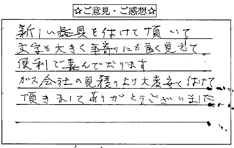 ☆ご意見・ご感想☆
新しい器具を付けて頂いて
文字も大きく年寄りにも良く見えて
便利で喜んでおります
ガス会社の見積りより大変安く付けて
頂きましてありがとうございました